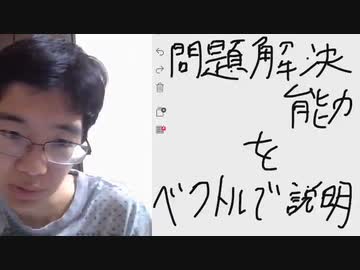 問題解決
能力
を
ベクトルで説明